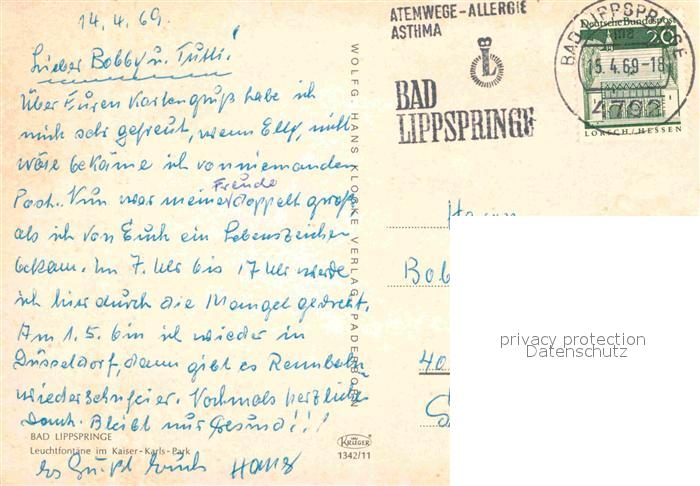 14.4.69.
Lieber Bobby u. Tutti!
Über Euren Kartengruß habe ich
mich sehr gefreut, wenn Elly nicht
wäre bekäme ich von niemanden
Post. Nun war meine Freude doppelt groß
als ich von Euch ein Lebenszeichen
bekam. Im 7. Uhr bis 17 Uhr werde
ich hier durch die Mangel gedreht.
Am 1.5. bin ich wieder in
Düsseldorf, dann gibt es Rennbahn
wiedersehnfeier. Nochmals herzlichen
Dank. Bleibt nur Gesund!!!
BAD LIPPSPRINGE
Leuchtfontäne im Kaiser-Karls-Park
Es Grüßt Euch Hans
WOLFG. HANS KLOCKE VERLAG PADERBORN
KRÜGER
1342/11
ATEMWEGE-ALLERGIE
ASTHMA
BAD
LIPPSPRINGE
BAD LIPPSPRINGE
15.4.69-18
4792
Deutsche Bundespost
20
LORSCH/HESSEN
Bob
40
privacy protection
Datenschutz